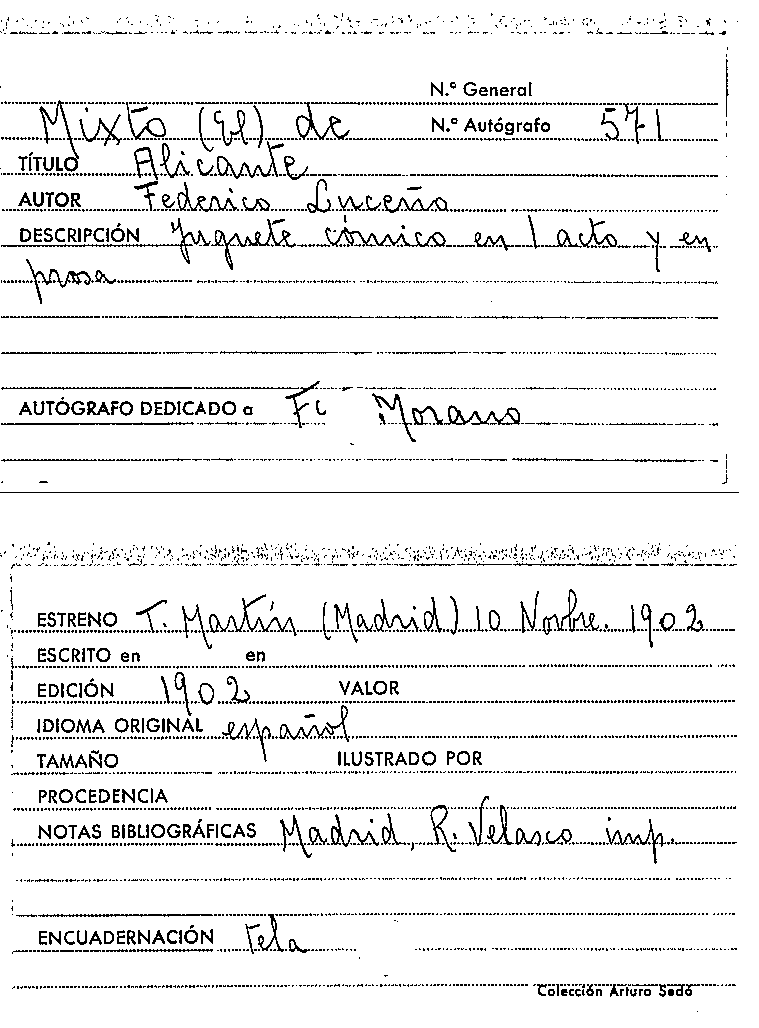 N.º General
Mixto (El) de N.º Autógrafo 571
TÍTULO Alicante
AUTOR Federico Luceño
DESCRIPCIÓN Juguete cómico en 1 acto y en
prosa
AUTÓGRAFO DEDICADO a Fc Morano
ESTRENO T. Martín (Madrid) 10 Novbre. 1902
ESCRITO en en
EDICIÓN 1902 VALOR
IDIOMA ORIGINAL español
TAMAÑO ILUSTRADO POR
PROCEDENCIA
NOTAS BIBLIOGRÁFICAS Madrid, R. Velasco imp.
ENCUADERNACIÓN Tela
Colección Arturo Sedó